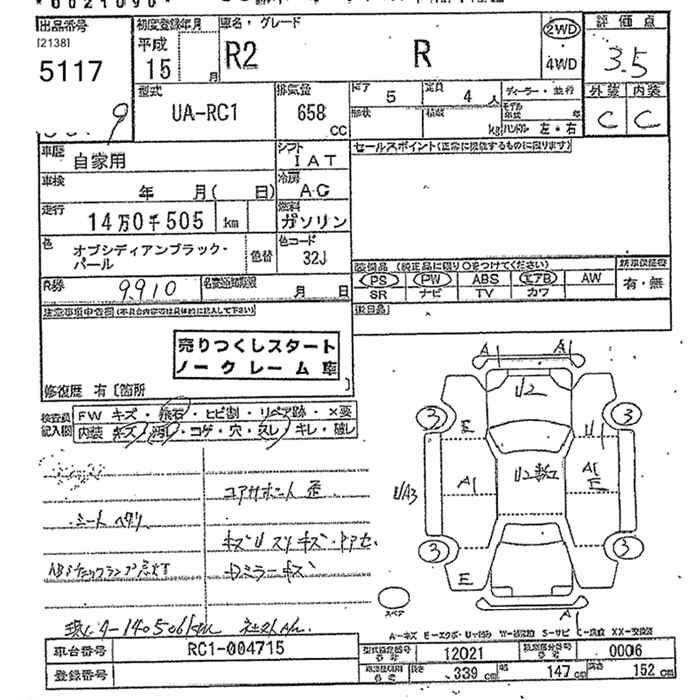 出品番号 初度登録年月 車名・グレード 評価点
[2138] 平成
5117 15 月 R2 R 2WD 4WD 3.5
型式 UA-RC1 排気量 658 CC ドア 5 定員 4 人 ディーラー・並行 外装 内装
形状 積載 kg ハンドル 左・右 C C
9
車歴 自家用 シフト IAT セールスポイント(正常に機能するものに限ります)
車検 年 月( 日) 冷房 AC
走行 14万0千505 km 燃料 ガソリン
色 オブシディアンブラック・パール 色替 色コード 32J
R券 9,910 月 日
装備品 (純正品に限り○をつけてください) 新車保証書
PS PW ABS エアB AW 有・無
SR ナビ TV カワ
後日品
注意事項申告欄
売りつくしスタート
ノークレーム車
修復歴 有 [箇所
検査員記入欄 FW キズ・飛石・ヒビ割・リペア跡・×要
内装 キズ 汚レ・コゲ・穴・スレ・キレ・破レ
コアサポート 歪
シートヘタリ
ABSチェックランプ点灯
Dミラーキズ
A A
U2
3 E U 3
U/A3 A U2 A E
3 3
E
スペア
A
A-キズ E-エクボ S-サビ XX-交換済
車台番号 RC1-004715 型式指定番号 12021 類別区分番号 0006
登録番号 長さ 339 cm 幅 147 cm 高さ 152 cm